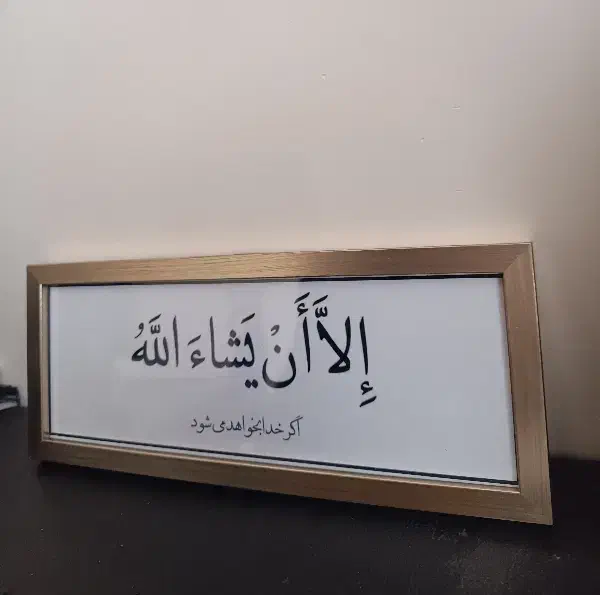 إِلاَّ أَنْ يَشاءَ اللَّهُ
اگر خدا بخواهد می شود